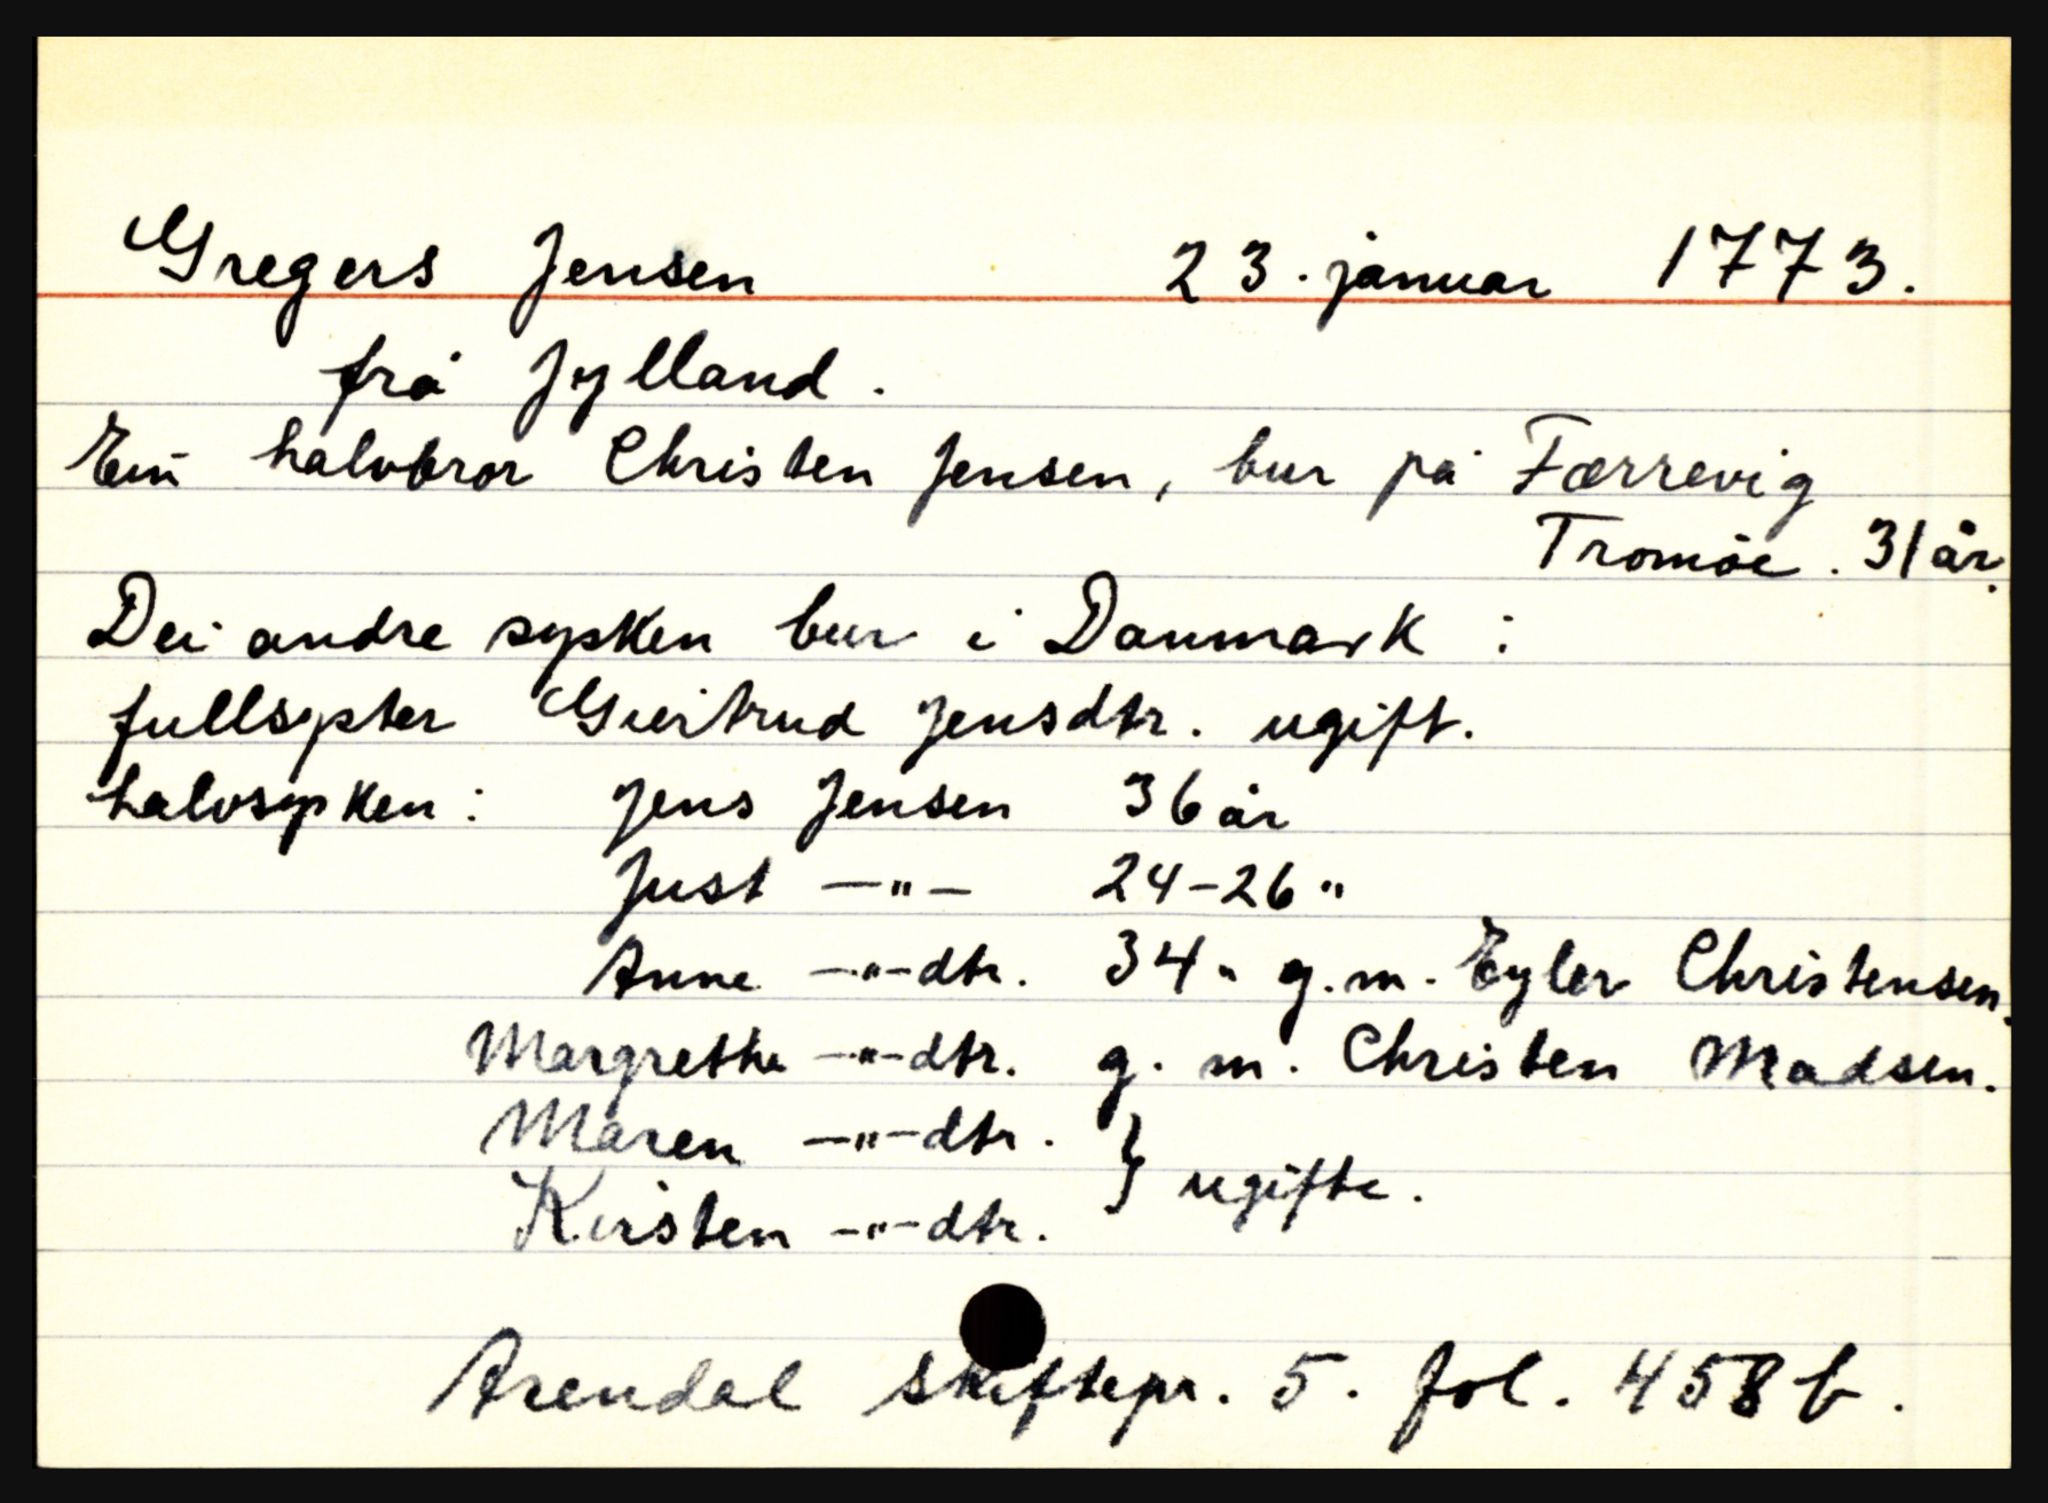 Gregers Jensen 23. januar 1773.
frå Jylland.
Ein halvbror Christen Jensen, bur på Færrevig
Tromöe. 31 år.
Dei andre sysken bur i Danmark:
fullsyster Giertrud Jensdtr. ugift.
halvsysken: Jens Jensen 36 år
Just —"— 24-26 "
Anne —"—dtr. 34 " g.m. Eyler Christensen.
Margrethe —"—dtr. g. m. Christen Madsen.
Maren —"—dtr. } ugifte.
Kirsten —"—dtr.
Arendal skiftepr. 5. fol. 458 b.